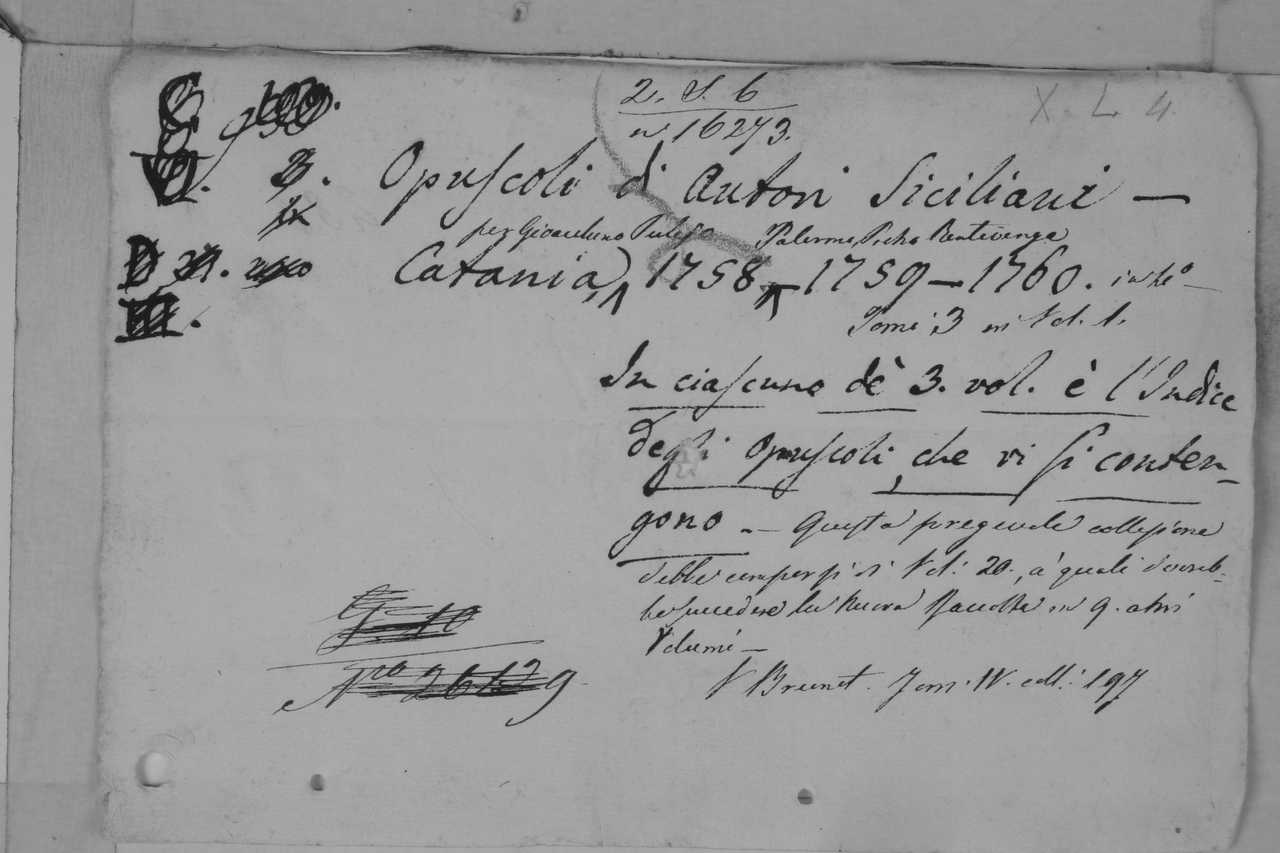 2. S. 6
X. L. 4.
n. 16273.
3. Opuscoli di Autori Siciliani —
per Gioacchino Pulejo Palermo, Pietro Bentivenga
Catania, 1758 — 1759 — 1760. in 4.º —
Tomi: 3 in Vol. 1.
In ciascuno dè 3. vol. è l'Indice
degli Opuscoli, che vi si conten-
gono — Questa pregevole collezione
debbe comporsi di Vol: 20., a' quali dovreb-
be succedere la Nuova Raccolta in 9. altri
Volumi —
V Brunet. Tom: IV. coll: 197
G 10
Nro 26129